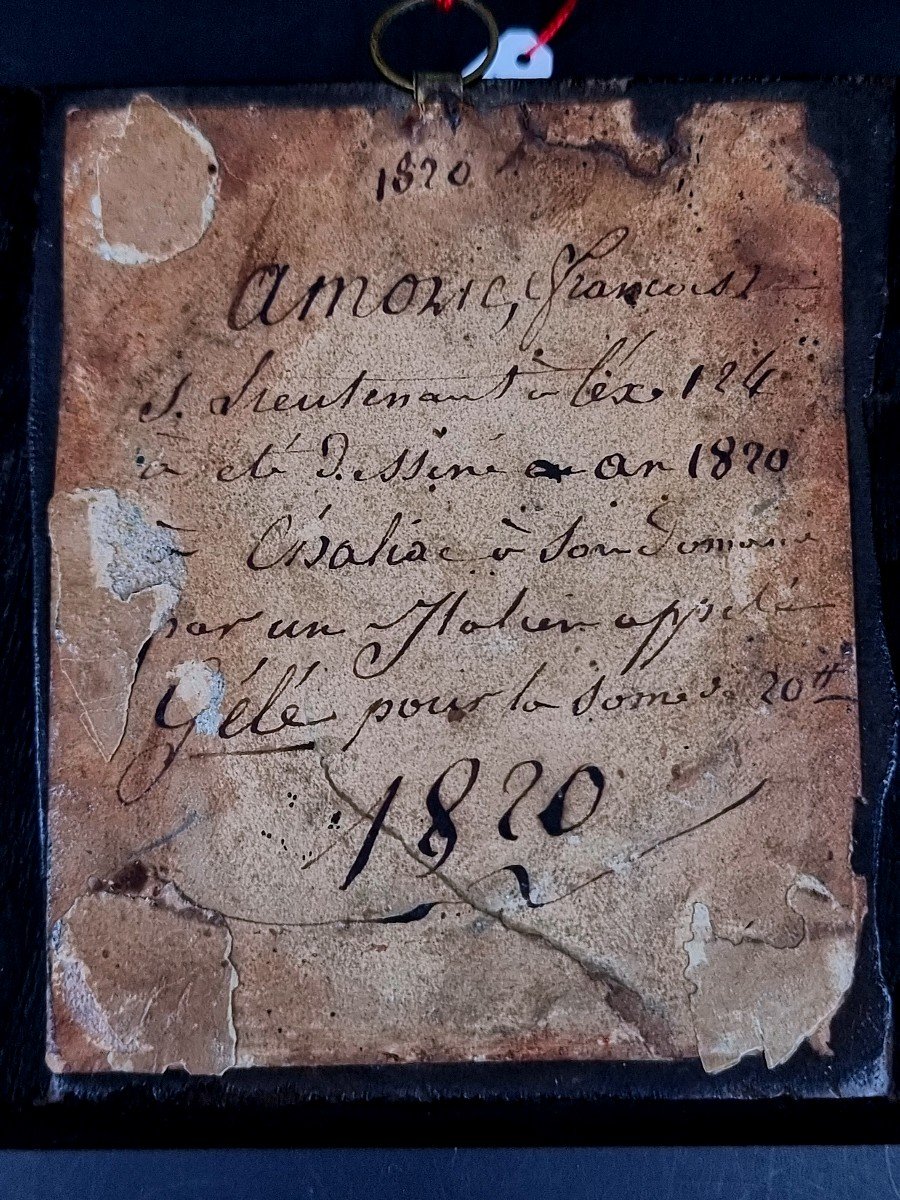 1820
Amouric, françois
S. Lieutenant à l'éx 124
à eté Dessiné an 1820
à à Son Domaine
par un Italien appelé
Gélé pour la some de 20 ₶
1820